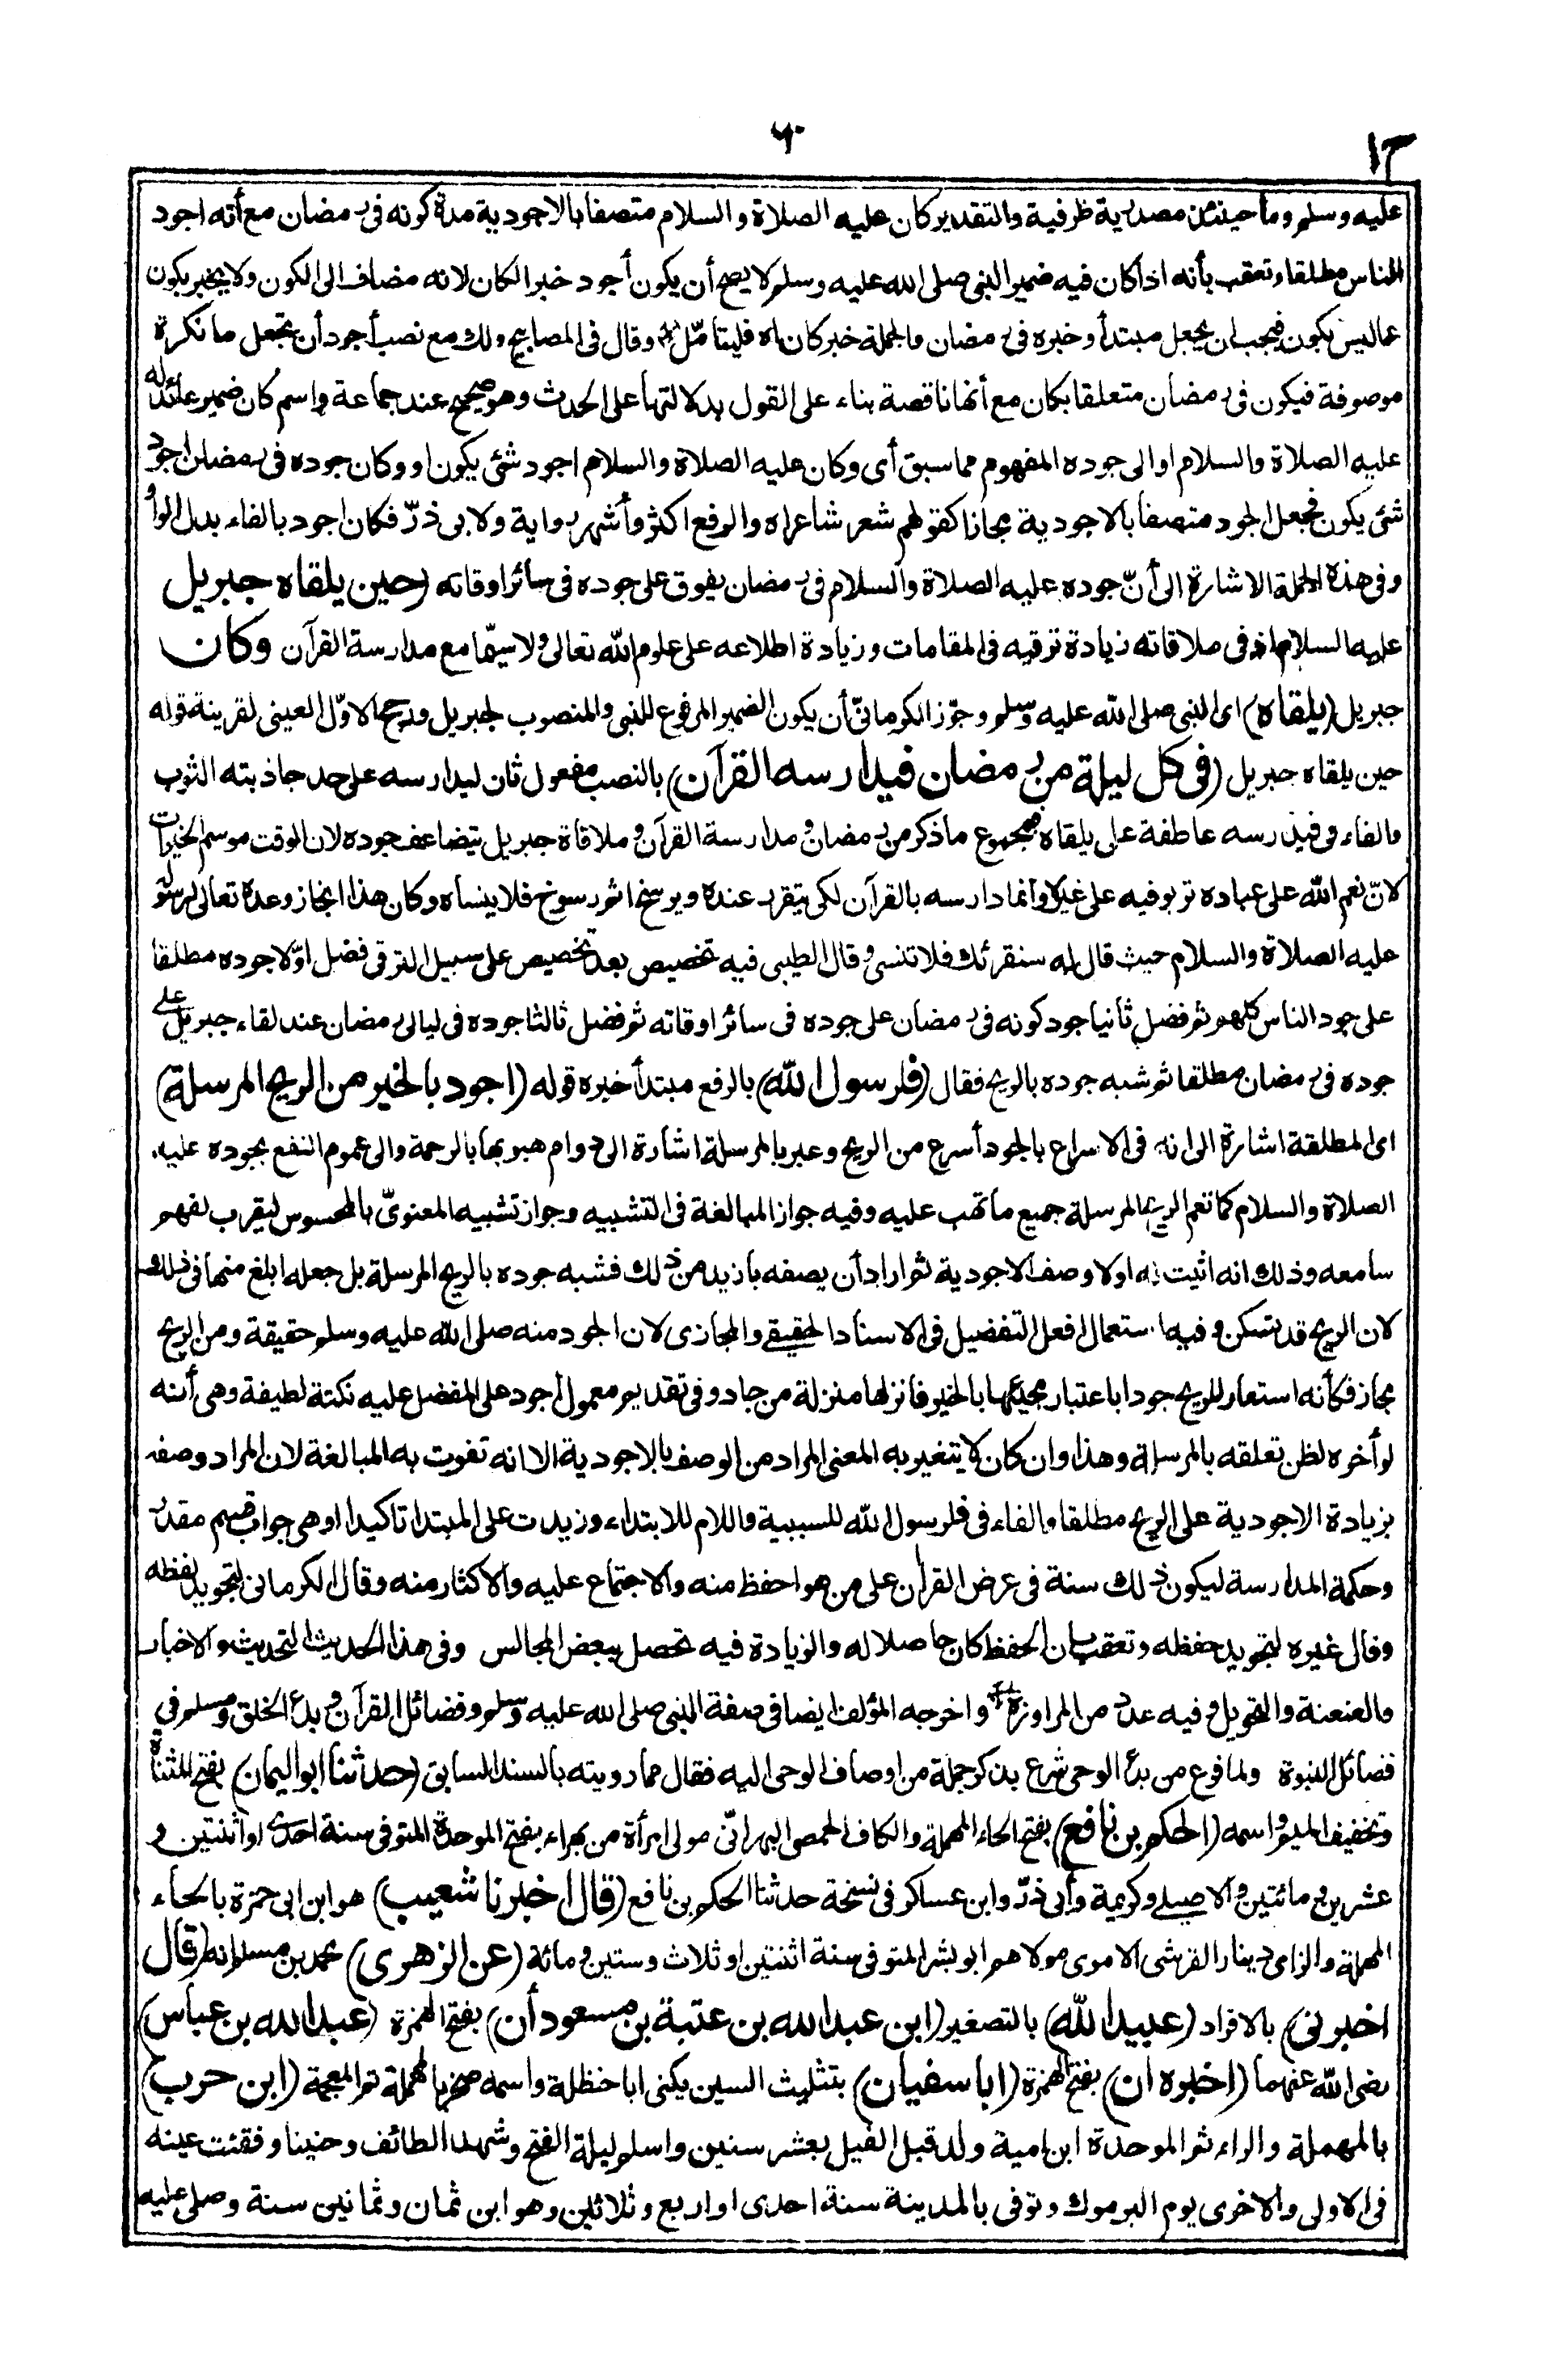 ٦٠
عليه وسلم وما حينئذ مصدرية ظرفية والتقدير كان عليه الصلاة والسلام متصفا بالاجودية مدة كونه في رمضان مع أنه اجود
الناس مطلقا وتعقب بأنه اذا كان فيه ضمير النبي صلى الله عليه وسلم لا يصح أن يكون أجود خبرا لكان لانه مضاف الى الكون ولا يخبر بكون
عما ليس بكون فيجب ان يجعل مبتدأ وخبره في رمضان والجملة خبر كان اه فليتأمّل وقال في المصابيح ولك مع نصب أجود أن تجعل ما نكرة
موصوفة فيكون في رمضان متعلقا بكان مع أنها ناقصة بناء على القول بدلالتها على الحدث وهو صحيح عند جماعة واسم كان ضمير عائد له
عليه الصلاة والسلام او الى جوده المفهوم مما سبق أى وكان عليه الصلاة والسلام اجود شئ يكون او وكان جوده في رمضان اجود
شئ يكون فجعل الجود متصفا بالاجودية مجازا كقولهم شعر شاعر اه والرفع اكثر وأشهر رواية ولابى ذرّ فكان اجود بالفاء بدل الواو
وفي هذه الجملة الاشارة الى أنّ جوده عليه الصلاة والسلام في رمضان يفوق على جوده في سائر اوقاته (حين يلقاه جبريل
عليه السلام اذ في ملاقاته زيادة ترقيه في المقامات وزيادة اطلاعه على علوم الله تعالى ولا سيّما مع مدارسة القرآن وكان
جبريل (يلقاه) اى النبي صلى الله عليه وسلم وجوّز الكرمانيّ أن يكون الضمير المرفوع للنبي والمنصوب لجبريل ورجح الاوّل العينى لقرينة قوله
حين يلقاه جبريل (في كل ليلة من رمضان فيدارسه القرآن) بالنصب مفعول ثان ليدارسه على حد جاذبته الثوب
والفاء في فيدارسه عاطفة على يلقاه فبمجموع ما ذكر من رمضان ومدارسة القرآن وملاقاة جبريل يتضاعف جوده لان الوقت موسم الخيرات
لانّ نعم الله على عباده تربو فيه على غيره وانما دارسه بالقرآن لكى يتقرر عنده ويرسخ اثر رسوخ فلا ينساه وكان هذا انجاز وعده تعالى لرسوله
عليه الصلاة والسلام حيث قال له سنقرئك فلا تنسى وقال الطيبى فيه تخصيص بعد تخصيص على سبيل الترقى فضل اوّلا جوده مطلقا
على جود الناس كلهم ثم فضل ثانيا جود كونه في رمضان على جوده في سائر اوقاته ثم فضل ثالثا جوده في ليالى رمضان عند لقاء جبريل على
جوده في رمضان مطلقا ثم شبه جوده بالريح فقال (فلرسول الله) بالرفع مبتدأ خبره قوله (اجود بالخير من الريح المرسلة)
اى المطلقة اشارة الى انه في الاسراع بالجود أسرع من الريح وعبر بالمرسلة اشارة الى دوام هبوبها بالرحمة والى عموم النفع بجوده عليه
الصلاة والسلام كما تعم الريح المرسلة جميع ما تهب عليه وفيه جواز المبالغة في التشبيه وجواز تشبيه المعنوىّ بالمحسوس ليقرب لفهم
سامعه وذلك انه اثبت له اولا وصف الاجودية ثم اراد أن يصفه بازيد من ذلك فشبه جوده بالريح المرسلة بل جعله ابلغ منها في ذلك
لان الريح قد تسكن وفيه استعمال افعل التفضيل في الاسناد الحقيقى والمجازى لان الجود منه صلى الله عليه وسلم حقيقة ومن الريح
مجاز فكأنه استعار للريح جودا باعتبار مجيئها بالخير فانزلها منزلة من جاد وفي تقديم معمول أجود على المفضل عليه نكتة لطيفة وهى أنه
لو أخره لظن تعلقه بالمرسلة وهذا وان كان لا يتغير به المعنى المراد من الوصف بالاجودية الا انه تفوت به المبالغة لان المراد وصفه
بزيادة الاجودية على الريح مطلقا والفاء في فلرسول الله للسببية واللام للابتداء وزيدت على المبتدا تاكيدا او هى جواب قسم مقدر
وحكمة المدارسة ليكون ذلك سنة في عرض القرآن على من هو احفظ منه والاجتماع عليه والاكثار منه وقال الكرمانى لتجويد لفظه
وقال غيره لتجويد حفظه وتعقب بان الحفظ كان حاصلا له والزيادة فيه تحصل ببعض المجالس وفي هذا الحديث التحديث والاخبار
والعنعنة والتحويل وفيه عدد من المراوزة واخرجه المؤلف ايضا في صفة النبي صلى الله عليه وسلم وفضائل القرآن وبدء الخلق ومسلم في
فضائل النبوة ولما فرغ من بدء الوحى شرع يذكر جملة من اوصاف الموحى اليه فقال مما رويته بالسند السابق (حدثنا ابو اليمان) بفتح المثناة
وتخفيف الميم واسمه (الحكم بن نافع) بفتح الحاء المهملة والكاف الحمصى البهرانىّ مولى امرأة من بهراء بفتح الموحدة المتوفى سنة احدى او اثنتين و
عشرين ومائتين وللاصيلى وكريمة وأبى ذرّ وابن عساكر في نسخة حدثنا الحكم بن نافع (قال اخبرنا شعيب) هو ابن ابى حمزة بالحاء
المهملة والزاى دينار القرشى الاموى مولاهم ابو بشر المتوفى سنة اثنتين او ثلاث وستين ومائة (عن الزهرى) محمد بن مسلم انه (قال
اخبرنى) بالافراد (عبيد الله) بالتصغير (ابن عبد الله بن عتبة بن مسعود أن) بفتح الهمزة (عبد الله بن عباس)
رضى الله عنهما (اخبره ان) بفتح الهمزة (ابا سفيان) بتثليث السين يكنى ابا حنظلة واسمه صخر بالمهملة ثم المعجمة (ابن حرب)
بالمهملة والراء ثم الموحدة ابن امية ولد قبل الفيل بعشر سنين واسلم ليلة الفتح وشهد الطائف وحنينا وفقئت عينه
في الاولى والاخرى يوم اليرموك وتوفى بالمدينة سنة احدى او اربع وثلاثين وهو ابن ثمان وثمانين سنة وصلى عليه